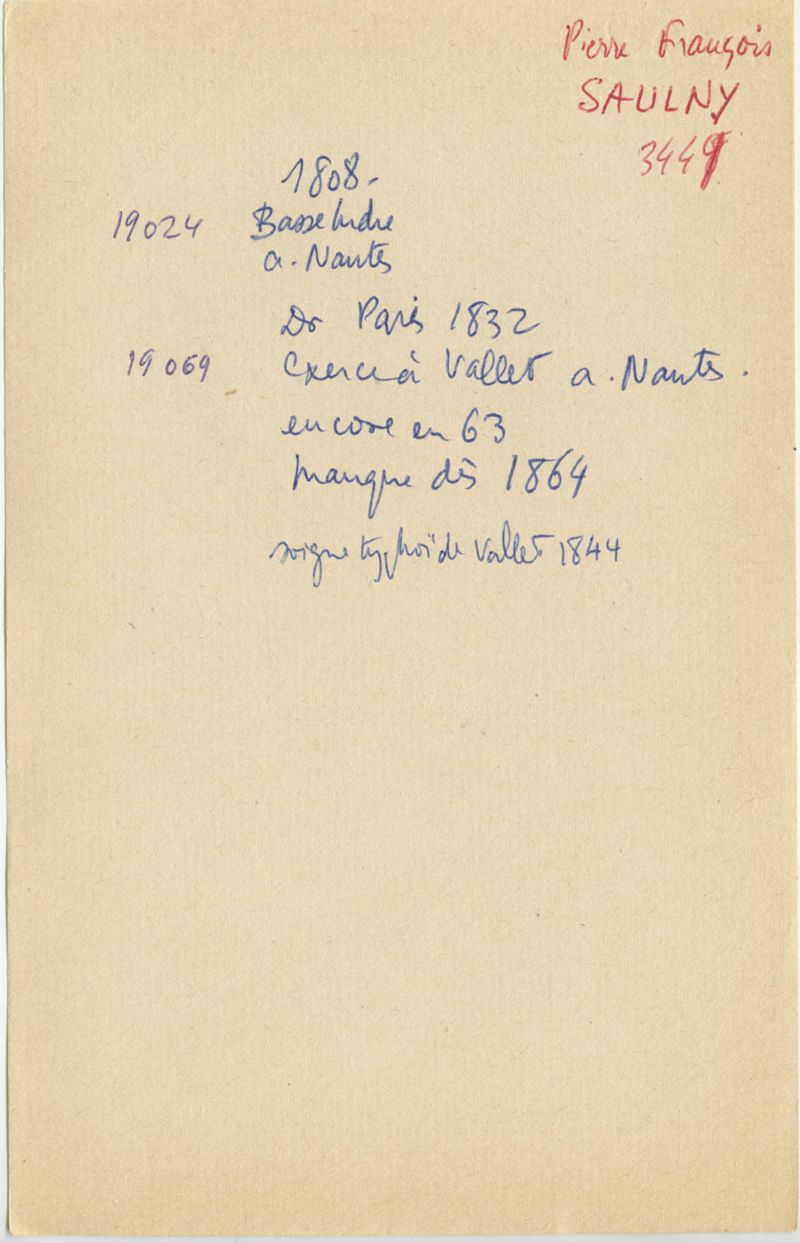 Pierre François
SAULNY
1808.
19024 Basse Indre
a. Nantes
Dr Paris 1832
19069 Exerce à Vallet a. Nantes.
encore en 63
manque dès 1864
soigne typhoïde Vallet 1844